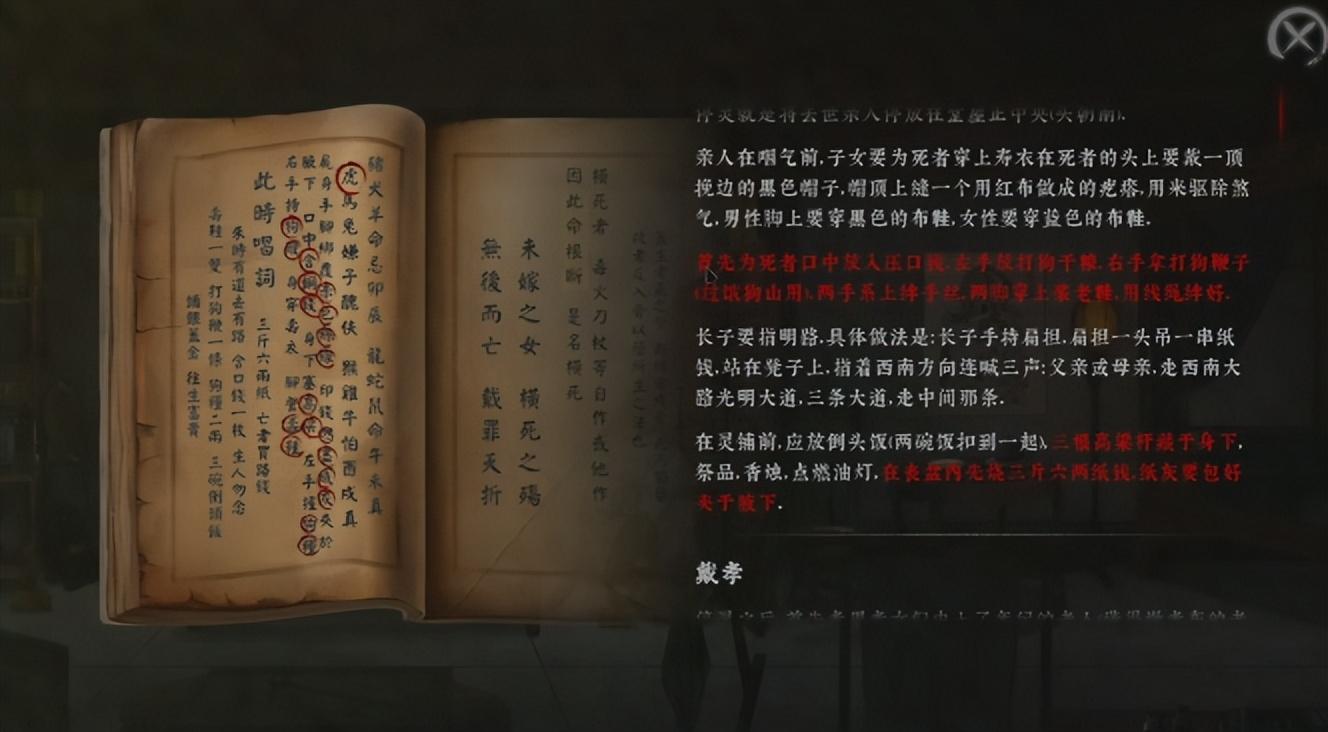 豬犬羊命忌卯辰 龍蛇鼠命午未真
虎馬兔嫌子醜候 猴雞牛怕酉戌真
屍身手腳綁
腋下 口中含銅錢 身下塞高粱 左手握狗糧
右手持狗鞭 身穿壽衣
此時唱詞 三斤六兩紙 亡者買路錢
來時有道去有路 含口錢一枚 生人勿念
壽鞋一雙 打狗鞭一條 狗糧二兩 三碗倒頭飯
往生富貴
橫死者 毒火刀杖等自作或他作
因此命根斷 是名橫死
未嫁之女 橫死之殤
無後而亡 戴罪夭折
停灵就是将去世亲人停放在堂屋正中央(头朝南).
亲人在咽气前,子女要为死者穿上寿衣在死者的头上要戴一顶
挽边的黑色帽子,帽顶上缝一个用红布做成的疙瘩,用来驱除煞
气,男性脚上要穿黑色的布鞋,女性要穿蓝色的布鞋.
首先为死者口中放入压口钱,左手放打狗干粮,右手拿打狗鞭子
(过饿狗山用),两手系上绊手丝,两脚穿上装老鞋,用线绳绊好.
长子要指明路,具体做法是:长子手持扁担,扁担一头吊一串纸
钱,站在凳子上,指着西南方向连喊三声:父亲或母亲,走西南大
路光明大道,三条大道,走中间那条.
在灵铺前,应放倒头饭(两碗饭扣到一起),三根高梁杆藏于身下,
祭品,香烛,点燃油灯,在丧盆内先烧三斤六两纸钱,纸灰要包好
夹于腋下.
戴孝